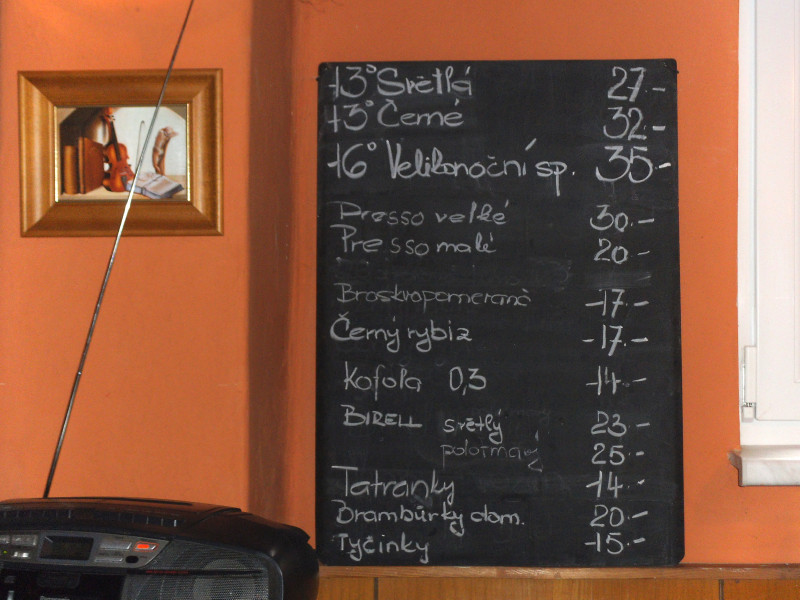 13° Světlá 27.-
13° Černé 32.-
16° Velikonoční sp. 35.-
Presso velké 30.-
Presso malé 20.-
Broskvopomeranč 17.-
Černý rybíz 17.-
Kofola 0,3 14.-
BIRELL světlý 23.-
polotmavý 25.-
Tatranky 14.-
Brambůrky dom. 20.-
Tyčinky 15.-